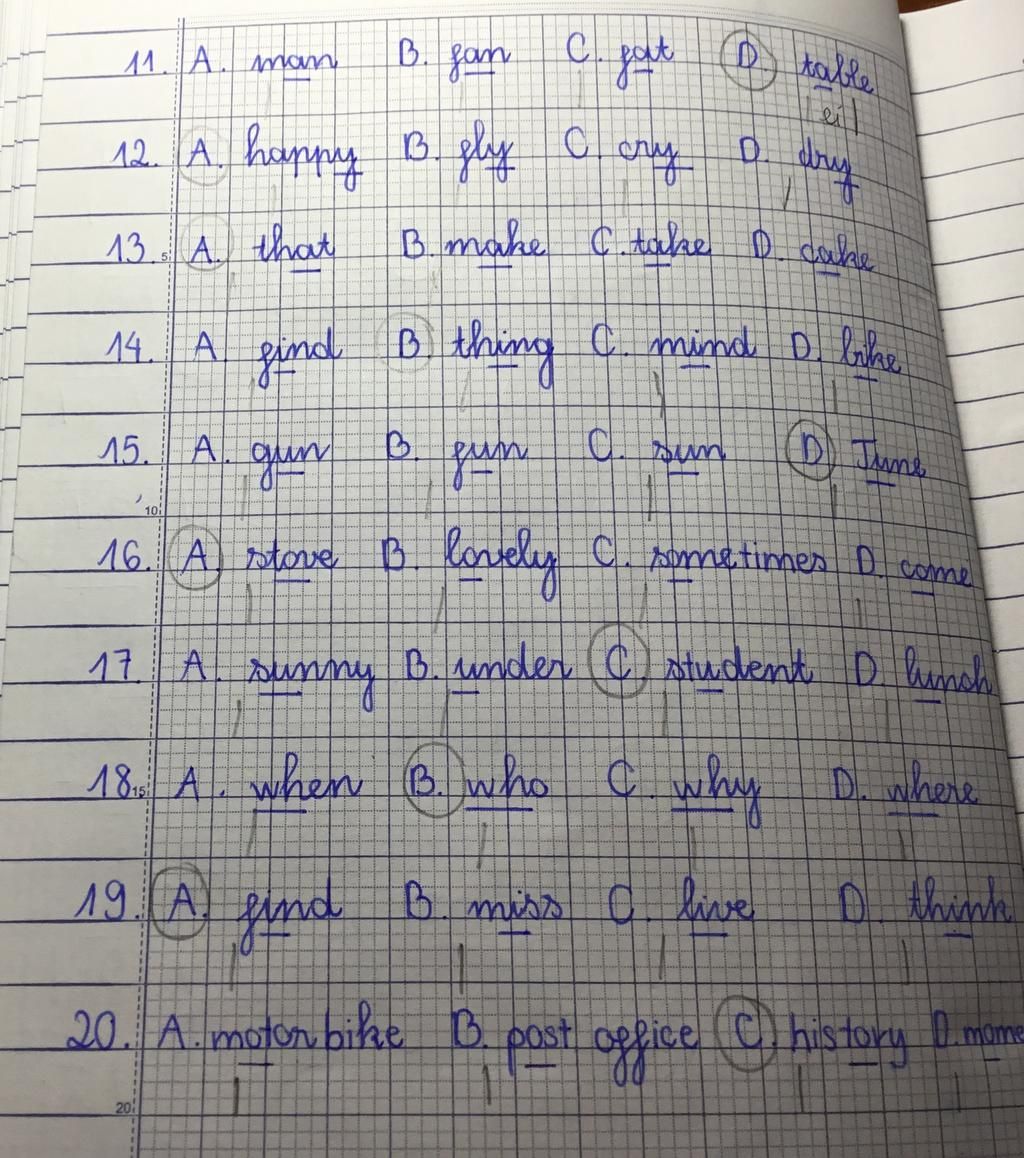 11. A. man B. fan C. fat D. table
/ei/
12. A. happy B. fly C. cry D. dry
13. 5 A. that B. make C. take D. cake
14. A. find B. thing C. mind D. like
15. A. gun B. fun C. sun D. June
10
16. A. stove B. lovely C. sometimes D. come
17. A. sunny B. under C. student D. lunch
18. 15 A. when B. who C. why D. where
19. A. find B. miss C. live D. think
20. A. motorbike B. post office C. history D. mome
20